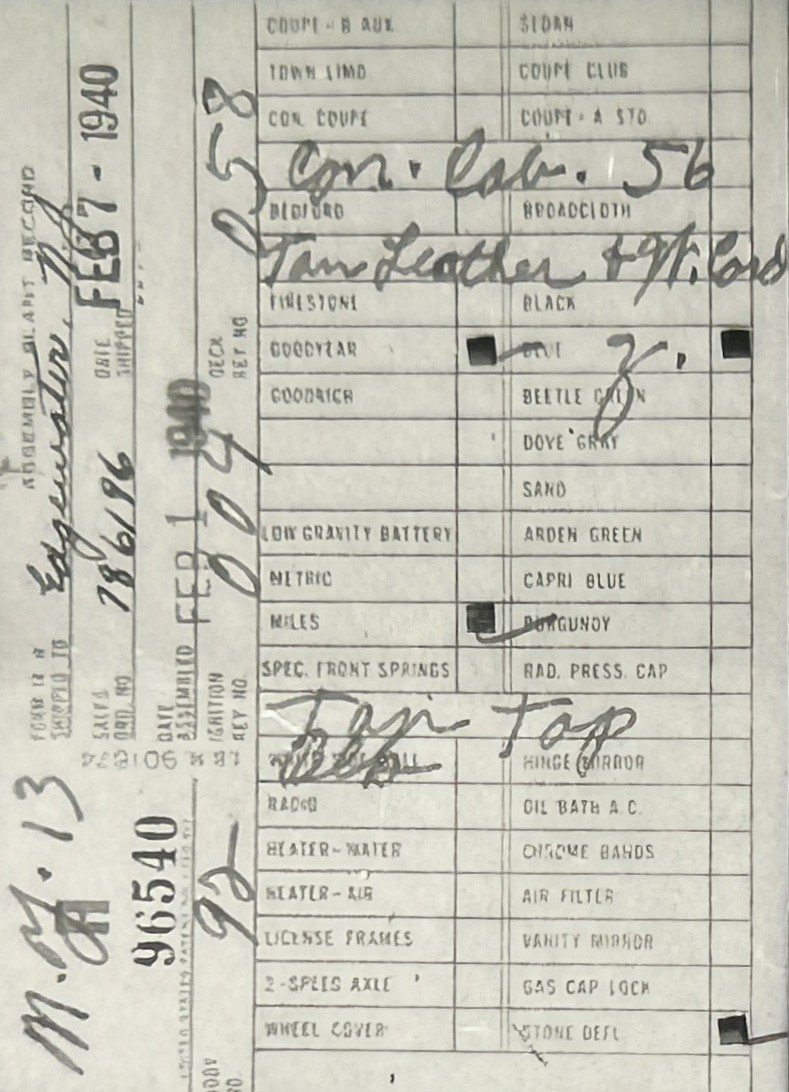 COUPE - B AUX. SEDAN
TOWN LIMO COUPE CLUB
CON. COUPE COUPE - A STD
Con. Cab. 56
BEDFORD BROADCLOTH
Tan Leather & W. Cord
FIRESTONE BLACK
GOODYEAR BLUE
GOODRICH BEETLE GREEN
DOVE GRAY
SAND
LOW GRAVITY BATTERY ARDEN GREEN
METRIC CAPRI BLUE
MILES BURGUNDY
SPEC. FRONT SPRINGS RAD. PRESS. CAP
Tan Top
WHITE SIDE WALL HINGE MIRROR
RADIO OIL BATH A.C.
HEATER-WATER CHROME BANDS
HEATER-AIR AIR FILTER
LICENSE FRAMES VANITY MIRROR
2-SPEED AXLE GAS CAP LOCK
WHEEL COVER STONE DEFL
ASSEMBLY PLANT RECORD
SHIPPED TO Edgewater, NJ
SALES ORD. NO. 786196 DATE SHIPPED FEB 7 - 1940
DATE ASSEMBLED FEB 1 1940
IGNITION KEY NO. 004 DECK KEY NO 058
13
96540
BODY NO. 92